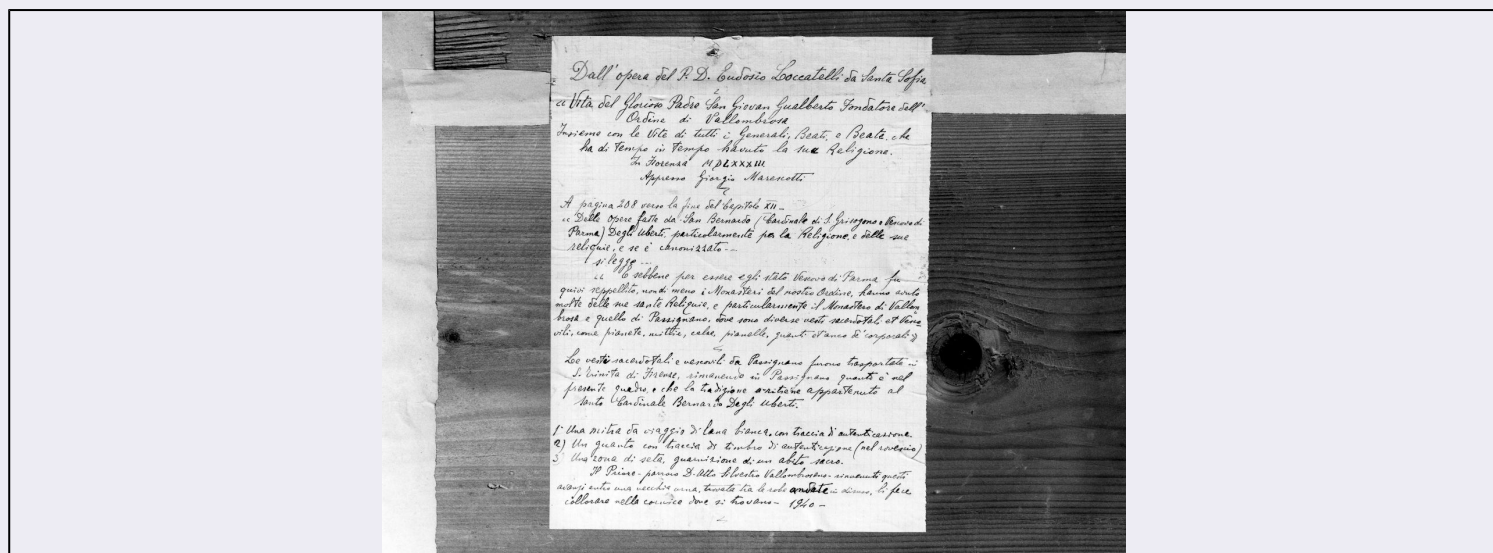 Dall'opera del P. D. Eudosio Loccatelli da Santa Sofia
« Vita del Glorioso Padre San Giovan Gualberto Fondatore dell'
Ordine di Vallombrosa
Insieme con le Vite di tutti i Generali, Beati, e Beate, che
ha di tempo in tempo havuto la sua Religione.
In Fiorenza MDLXXXIII
Appresso Giorgio Marescotti
A pagina 208 verso la fine del Capitolo XII -
« Delle opere fatte da San Bernardo (Cardinale di S. Grisogono e Vescovo di
Parma) Degli Uberti, particolarmente per la Religione, e delle sue
reliquie, e se è canonizzato --
si legge --
« E sebbene per essere egli stato Vescovo di Parma fu
quivi seppellito, non di meno i Monasteri del nostro Ordine, hanno avuto
molte delle sue sante Reliquie, e particolarmente il Monastero di Vallom
brosa e quello di Passignano, dove sono diverse vesti sacerdotali et Vesco
vili, come pianete, mittie, calze, pianelle, guanti et anco di corporali »
Le vesti sacerdotali e vescovili da Passignano furono trasportate in
S. Trinita di Firenze, rimanendo in Passignano quanti è nel
presente quadro, e che la tradizione ritiene appartenuto al
Santo Cardinale Bernardo Degli Uberti.
1) Una mitra da viaggio di lana bianca, con traccia di autenticazione.
2) Un guanto con traccia di timbro di autenticazione (nel rovescio)
3) Una zona di seta, guarnizione di un abito sacro.
Il Priore-parroco D. Atto Silvestro Vallombrosano - rinvenuti questi
avanzi entro una vecchia urna, trovata tra le robe andate in disuso, li fece
collocare nella cornice dove si trovano - 1940 -